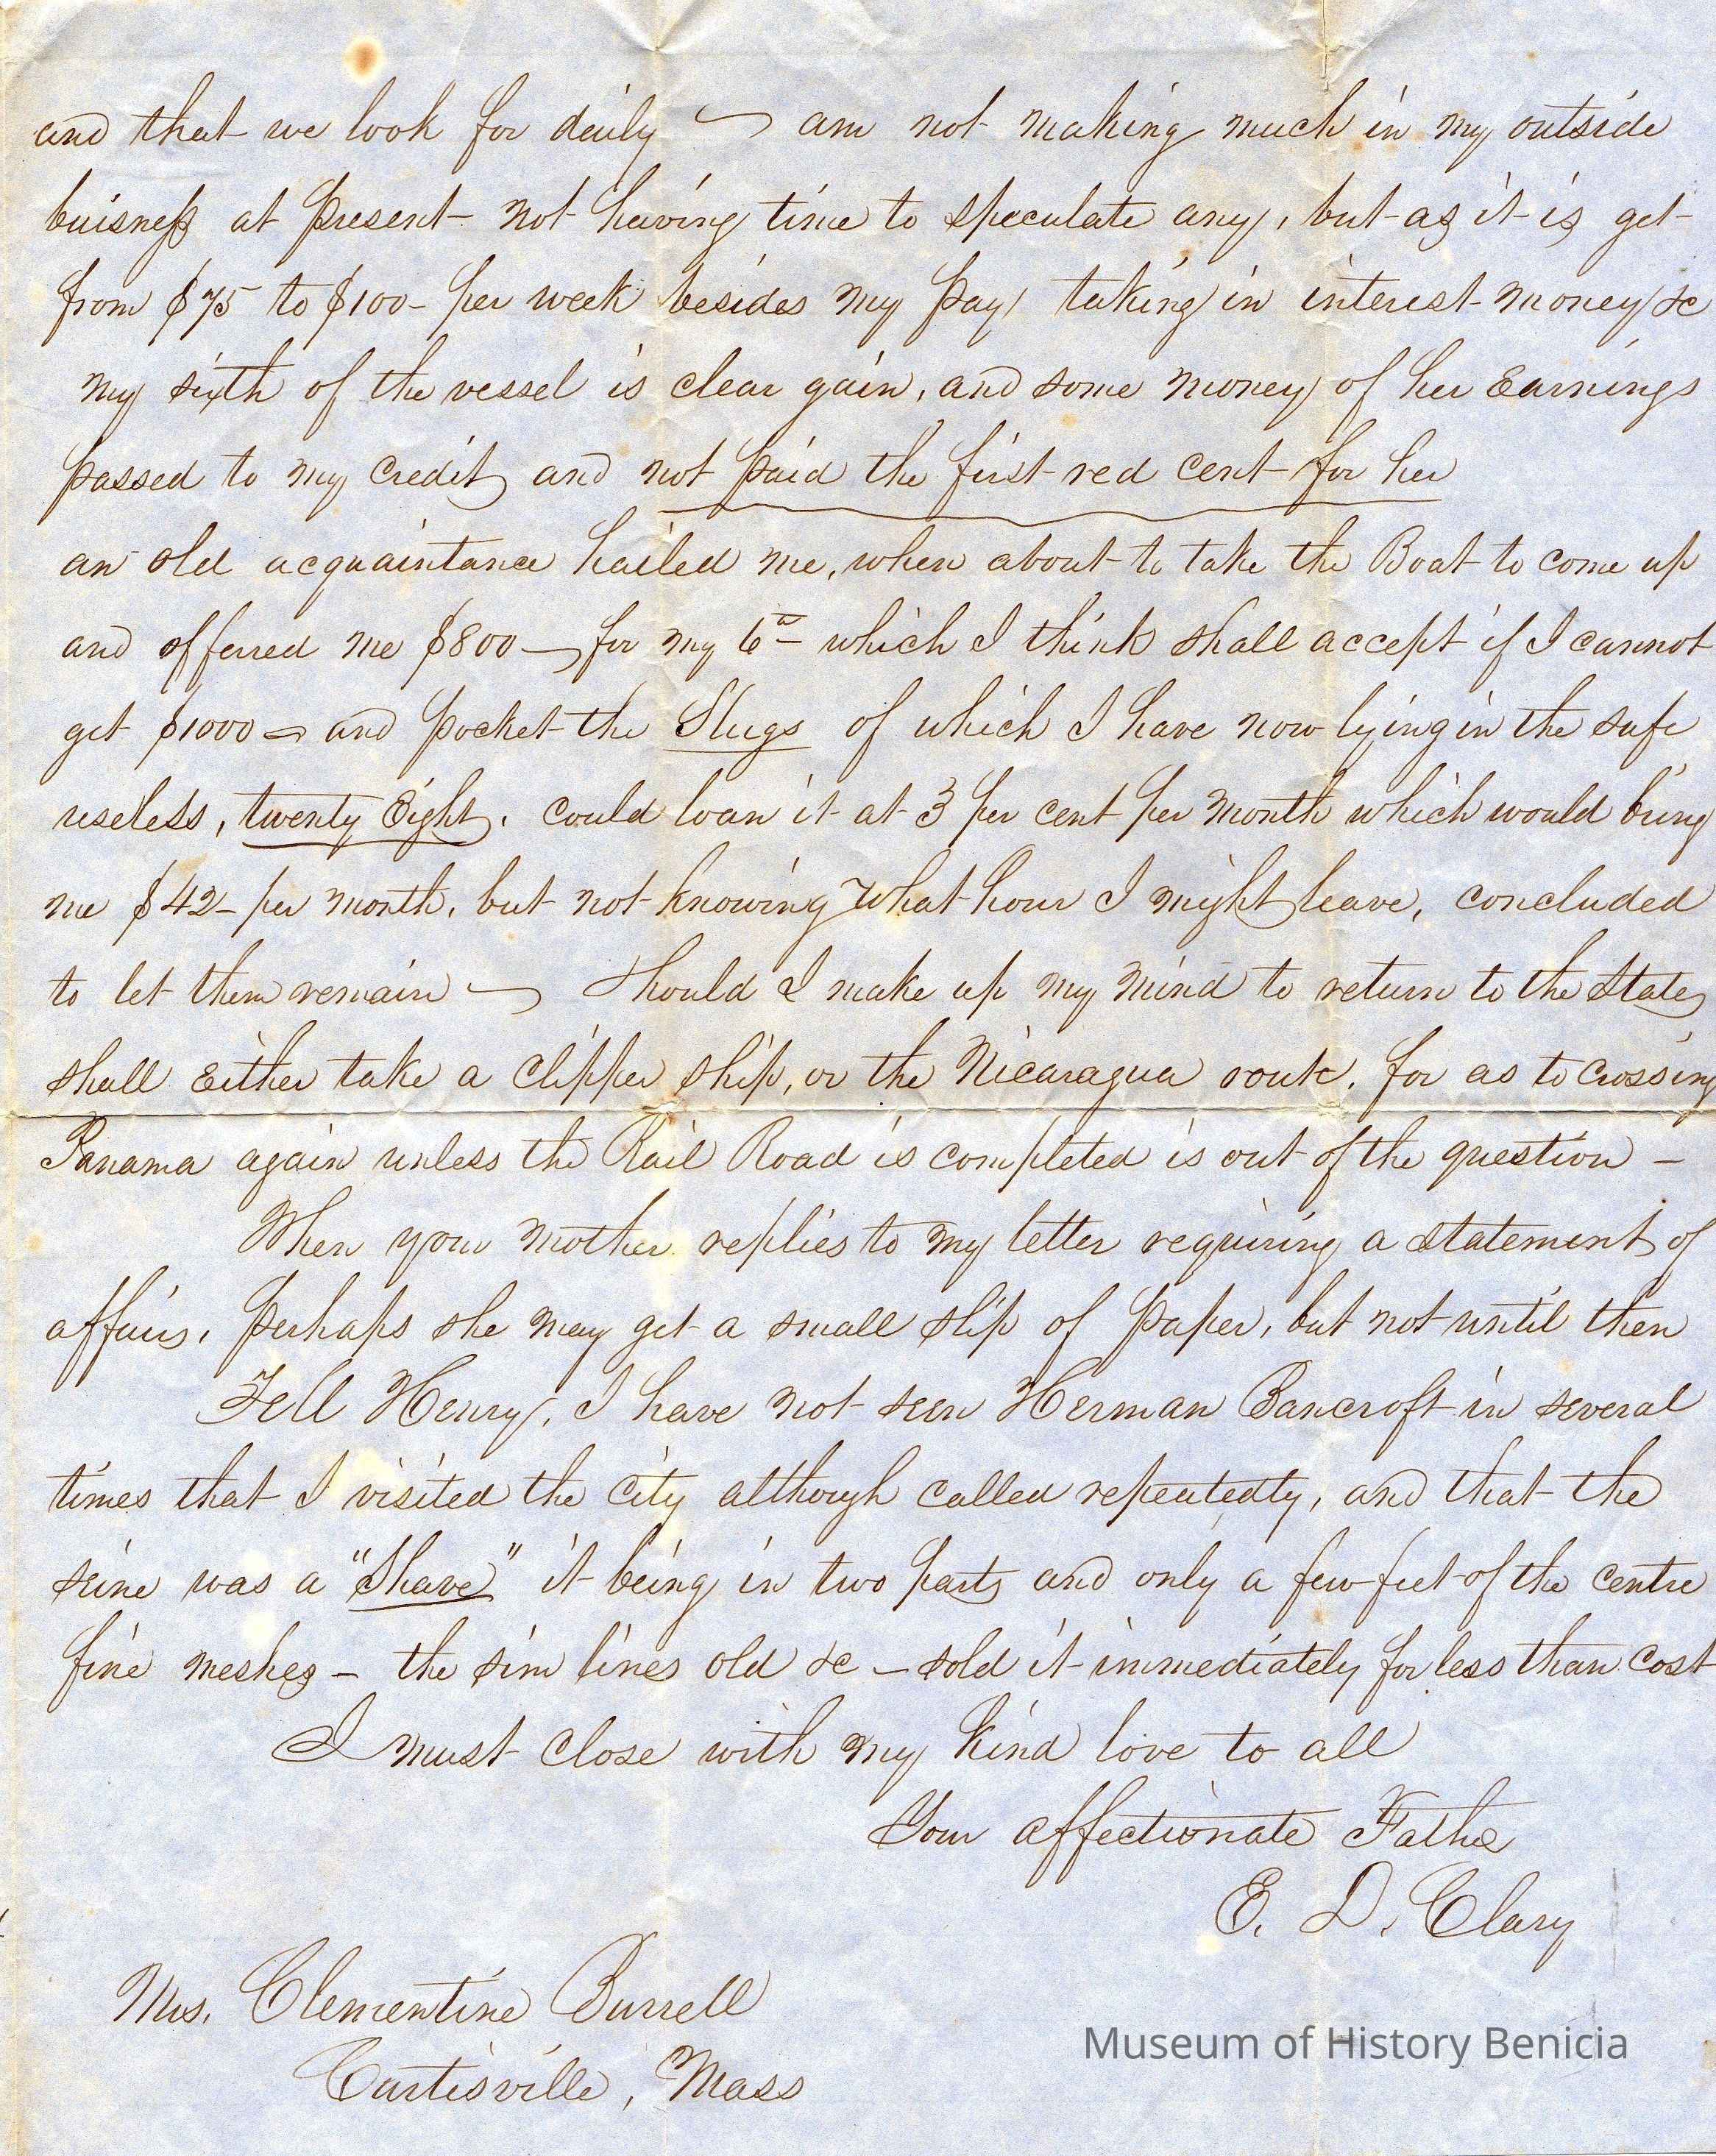 and that we look for daily — am not making much in my outside
buisness at present - not having time to speculate any, but as it is get
from $75 to $100 - per week besides my pay, taking in interest money &c
my sixth of the vessel is clear gain, and some money of her Earnings
passed to my credit, and not paid the first red cent for her
an old acquaintance hailed me, when about to take the Boat to come up
and offerred me $800 — for my 6th - which I think shall accept if I cannot
get $1000 — and pocket the Slugs of which I have now lying in the safe
useless, twenty Eight. could loan it at 3 per cent per month which would bring
me $42 - per month, but not knowing what hour I might leave, concluded
to let them remain — Should I make up my mind to return to the States
shall Either take a clipper ship, or the Nicaragua route. for as to crossing
Panama again unless the Rail Road is completed is out of the question -
When your mother replies to my letter requiring a statement of
affairs, perhaps she may get a small slip of paper, but not until then
Tell Henry, I have not seen Herman Bancroft in several
times that I visited the city although called repeatedly, and that the
seine was a "Shave" it being in two parts and only a few feet of the centre
fine meshes - the lines old &c - sold it immediately for less than cost
I must close with my kind love to all
Your affectionate Father
E. D. Clary
Mrs. Clementine Burrell
Curtisville, Mass
Museum of History Benicia